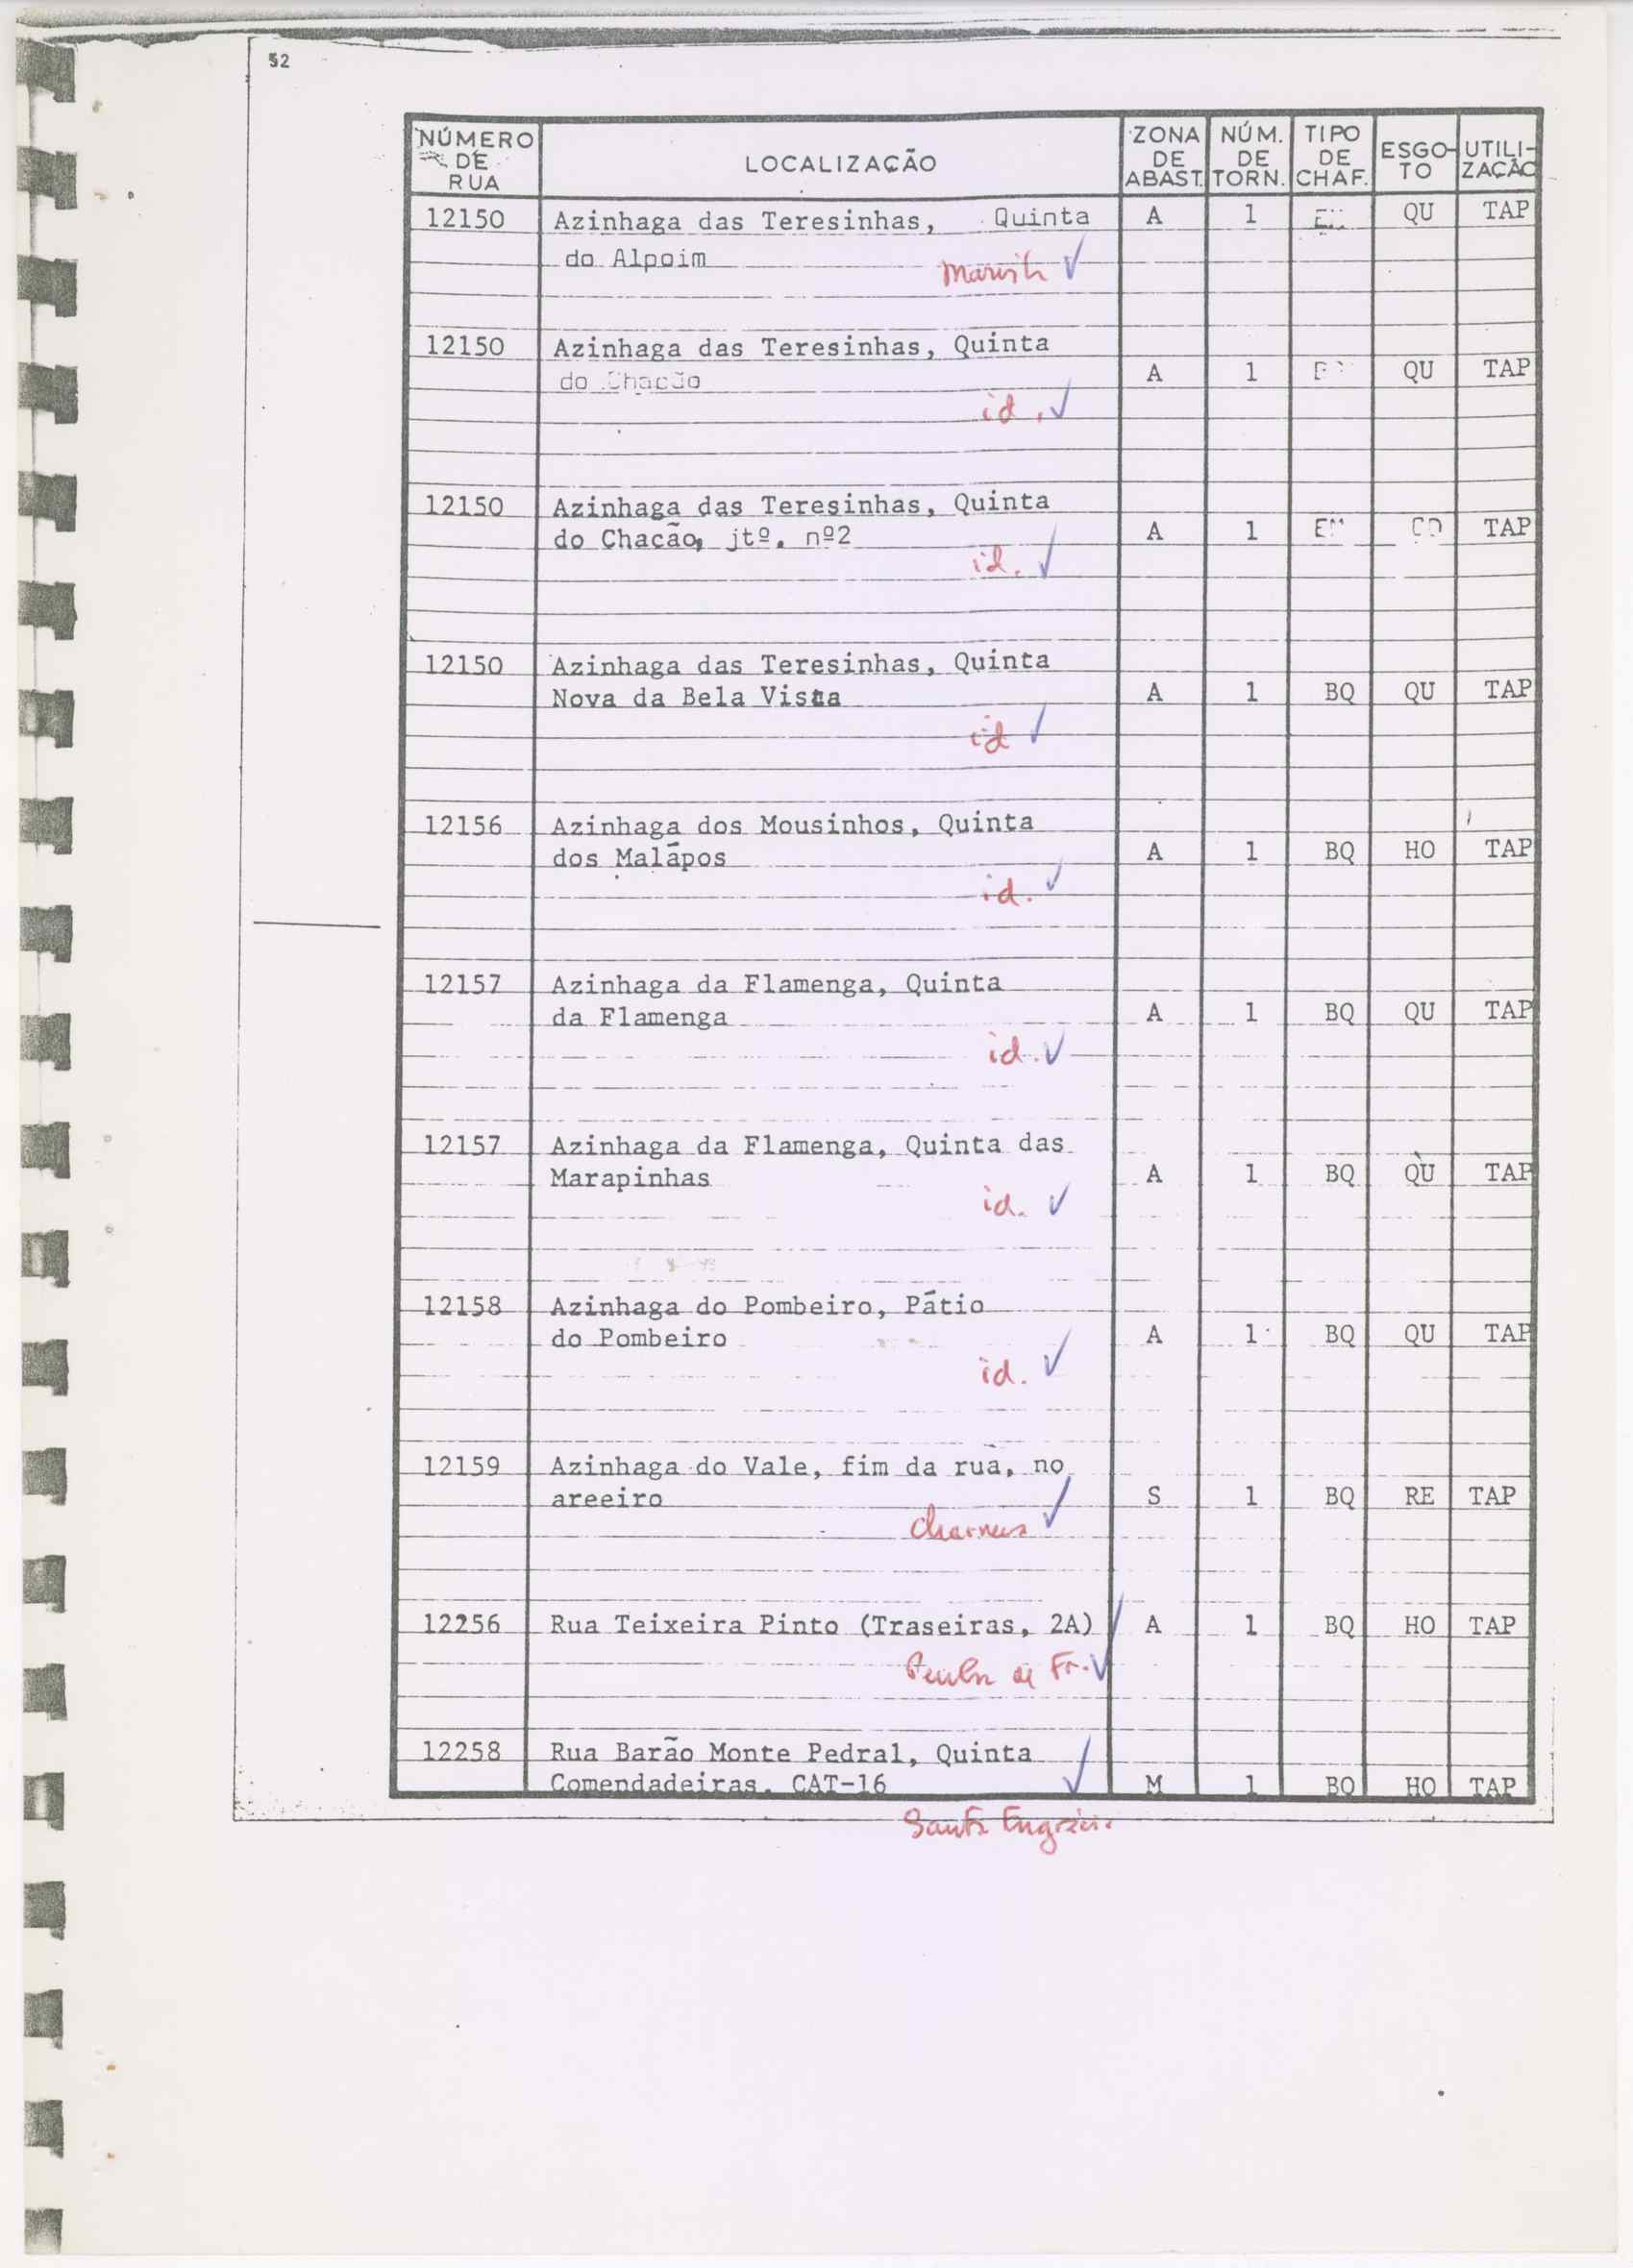 52
NÚMERO DE RUA LOCALIZAÇÃO ZONA DE ABAST. NÚM. DE TORN. TIPO DE CHAF. ESGO-TO UTILI-ZAÇÃO
12150 Azinhaga das Teresinhas, Quinta A 1 QU TAP
do Alpoim
12150 Azinhaga das Teresinhas, Quinta
do Chacão A 1 QU TAP
id. ✓
12150 Azinhaga das Teresinhas, Quinta
do Chacão, jtº. nº2 A 1 TAP
id. ✓
12150 Azinhaga das Teresinhas, Quinta
Nova da Bela Vista A 1 BQ QU TAP
id ✓
12156 Azinhaga dos Mousinhos, Quinta
dos Malápos A 1 BQ HO TAP
id. ✓
12157 Azinhaga da Flamenga, Quinta
da Flamenga A 1 BQ QU TAP
id. ✓
12157 Azinhaga da Flamenga, Quinta das
Marapinhas A 1 BQ QU TAP
id. ✓
12158 Azinhaga do Pombeiro, Pátio
do Pombeiro A 1 BQ QU TAP
id. ✓
12159 Azinhaga do Vale, fim da rua, no
areeiro S 1 BQ RE TAP
Charneca ✓
12256 Rua Teixeira Pinto (Traseiras, 2A) A 1 BQ HO TAP
Penha de Fr. ✓
12258 Rua Barão Monte Pedral, Quinta
Comendadeiras. CAT-16 M 1 BQ HO TAP
Santa Engrácia